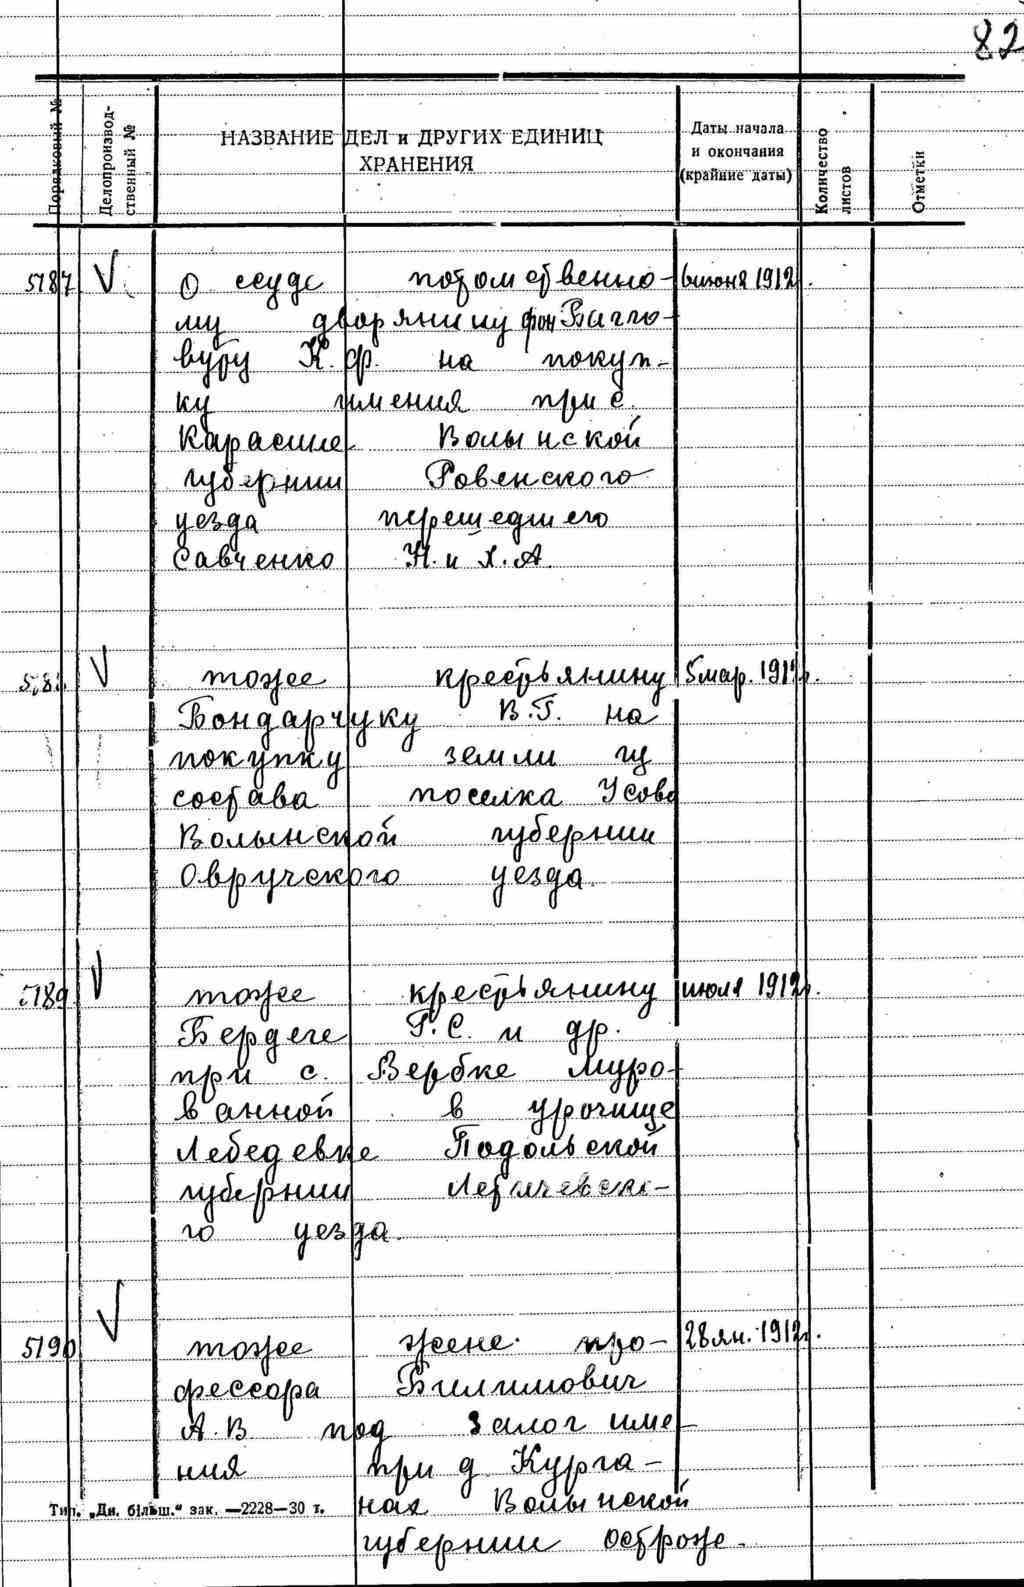 82
Порядковый №
Делопроизвод-
ственный №
НАЗВАНИЕ ДЕЛ и ДРУГИХ ЕДИНИЦ
ХРАНЕНИЯ
Даты начала
и окончания
(крайние даты)
Количество
листов
Отметки
5187 О ссуде потомственно- 6 июня 1912
му дворянину фон
К. Ф. на покуп-
ку имения при с.
Карасине Волынской
губернии Ровенского
уезда перешедшего
Савченко Н. и Х. А
тоже крестьянину 5 мар. 1912г.
Бондарчуку В. Г. на
покупку земли из
состава поселка Усово
Волынской губернии
Овручского уезда.
5189 тоже крестьянину июля 1912г.
Бердеге Г. С. и др.
при с. Вербке Муро-
ванной в урочище
Лебедевке Подольской
губернии Летичевско-
го уезда.
5190 тоже жене про- 28 ян. 1912г.
фессора Билимович
А. В под залог име-
ния при д Курга-
нах Волынской
губернии острож-
Тип. „Дн. більш.“ зак. —2228—30 т.